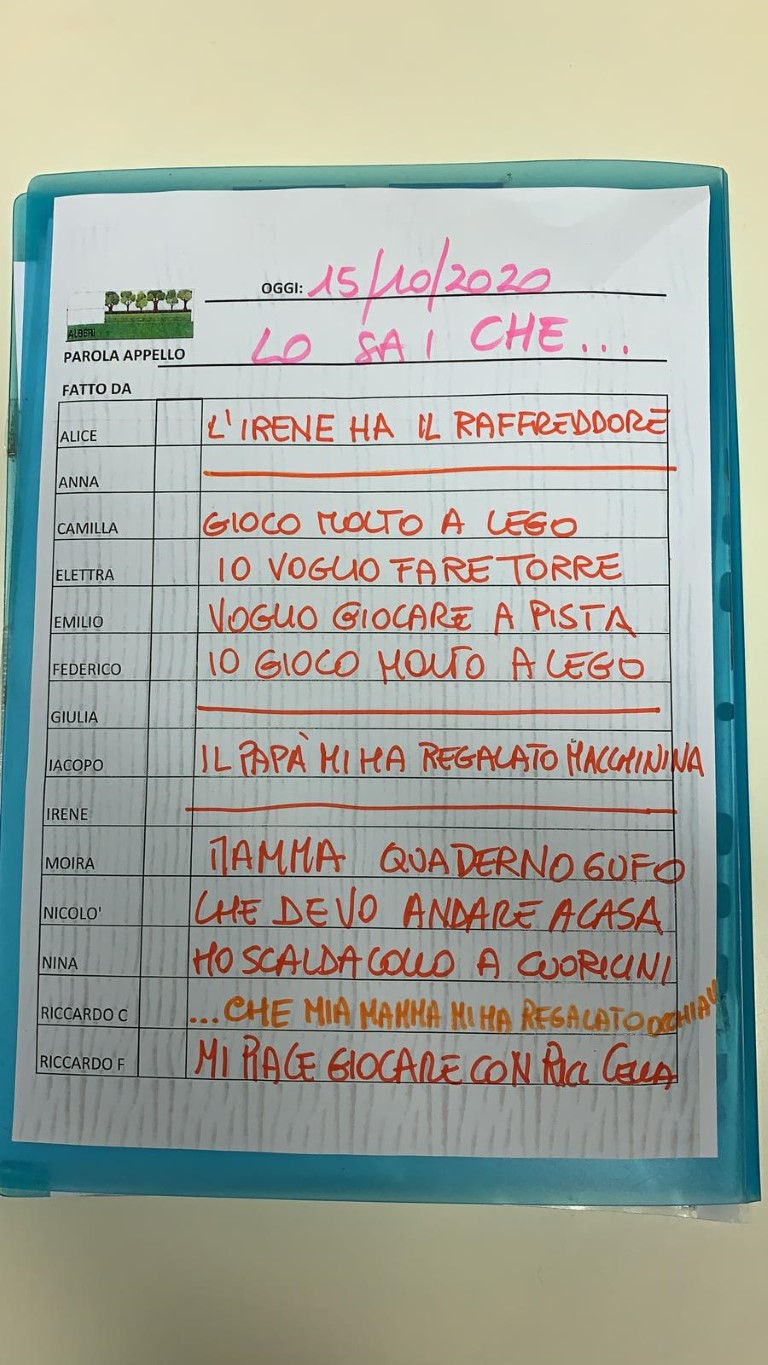 OGGI: 15/10/2020
ALBERI
PAROLA APPELLO LO SAI CHE...
FATTO DA
ALICE L'IRENE HA IL RAFFREDDORE
ANNA
CAMILLA GIOCO MOLTO A LEGO
ELETTRA IO VOGLIO FARE TORRE
EMILIO VOGLIO GIOCARE A PISTA
FEDERICO IO GIOCO MOLTO A LEGO
GIULIA
IACOPO IL PAPÀ MI HA REGALATO MACCHININA
IRENE
MOIRA MAMMA QUADERNO GUFO
NICOLO' CHE DEVO ANDARE A CASA
NINA HO SCALDACOLLO A CUORICINI
RICCARDO C ...CHE MIA MAMMA MI HA REGALATO OCCHIALI
RICCARDO F MI PIACE GIOCARE CON RICCI CELLA